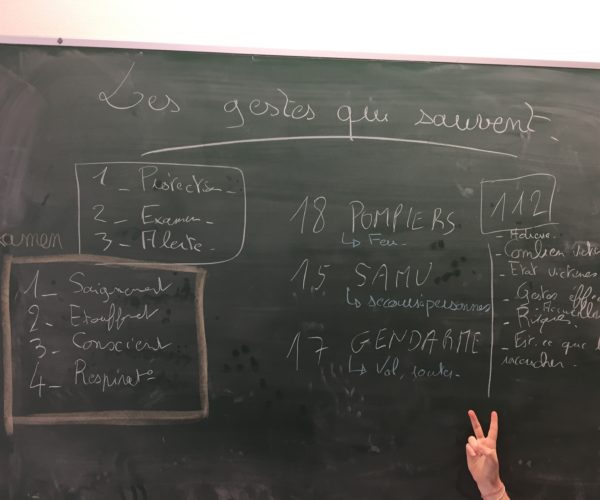 Les gestes qui sauvent.
1_ Protection_
2_ Examen_
3_ Alerte_
examen
1_ Saignement
2_ Etouffent
3_ Conscient
4_ Respirat°
18 POMPIERS
↳ Feu_
15 SAMU
↳ secours personnes
17 GENDARME
↳ Vol, routes_
112
- Adresse_
- Combien victi
- Etat victimes
- Gestes effe
- Risques_
- Est-ce que
raccrocher_